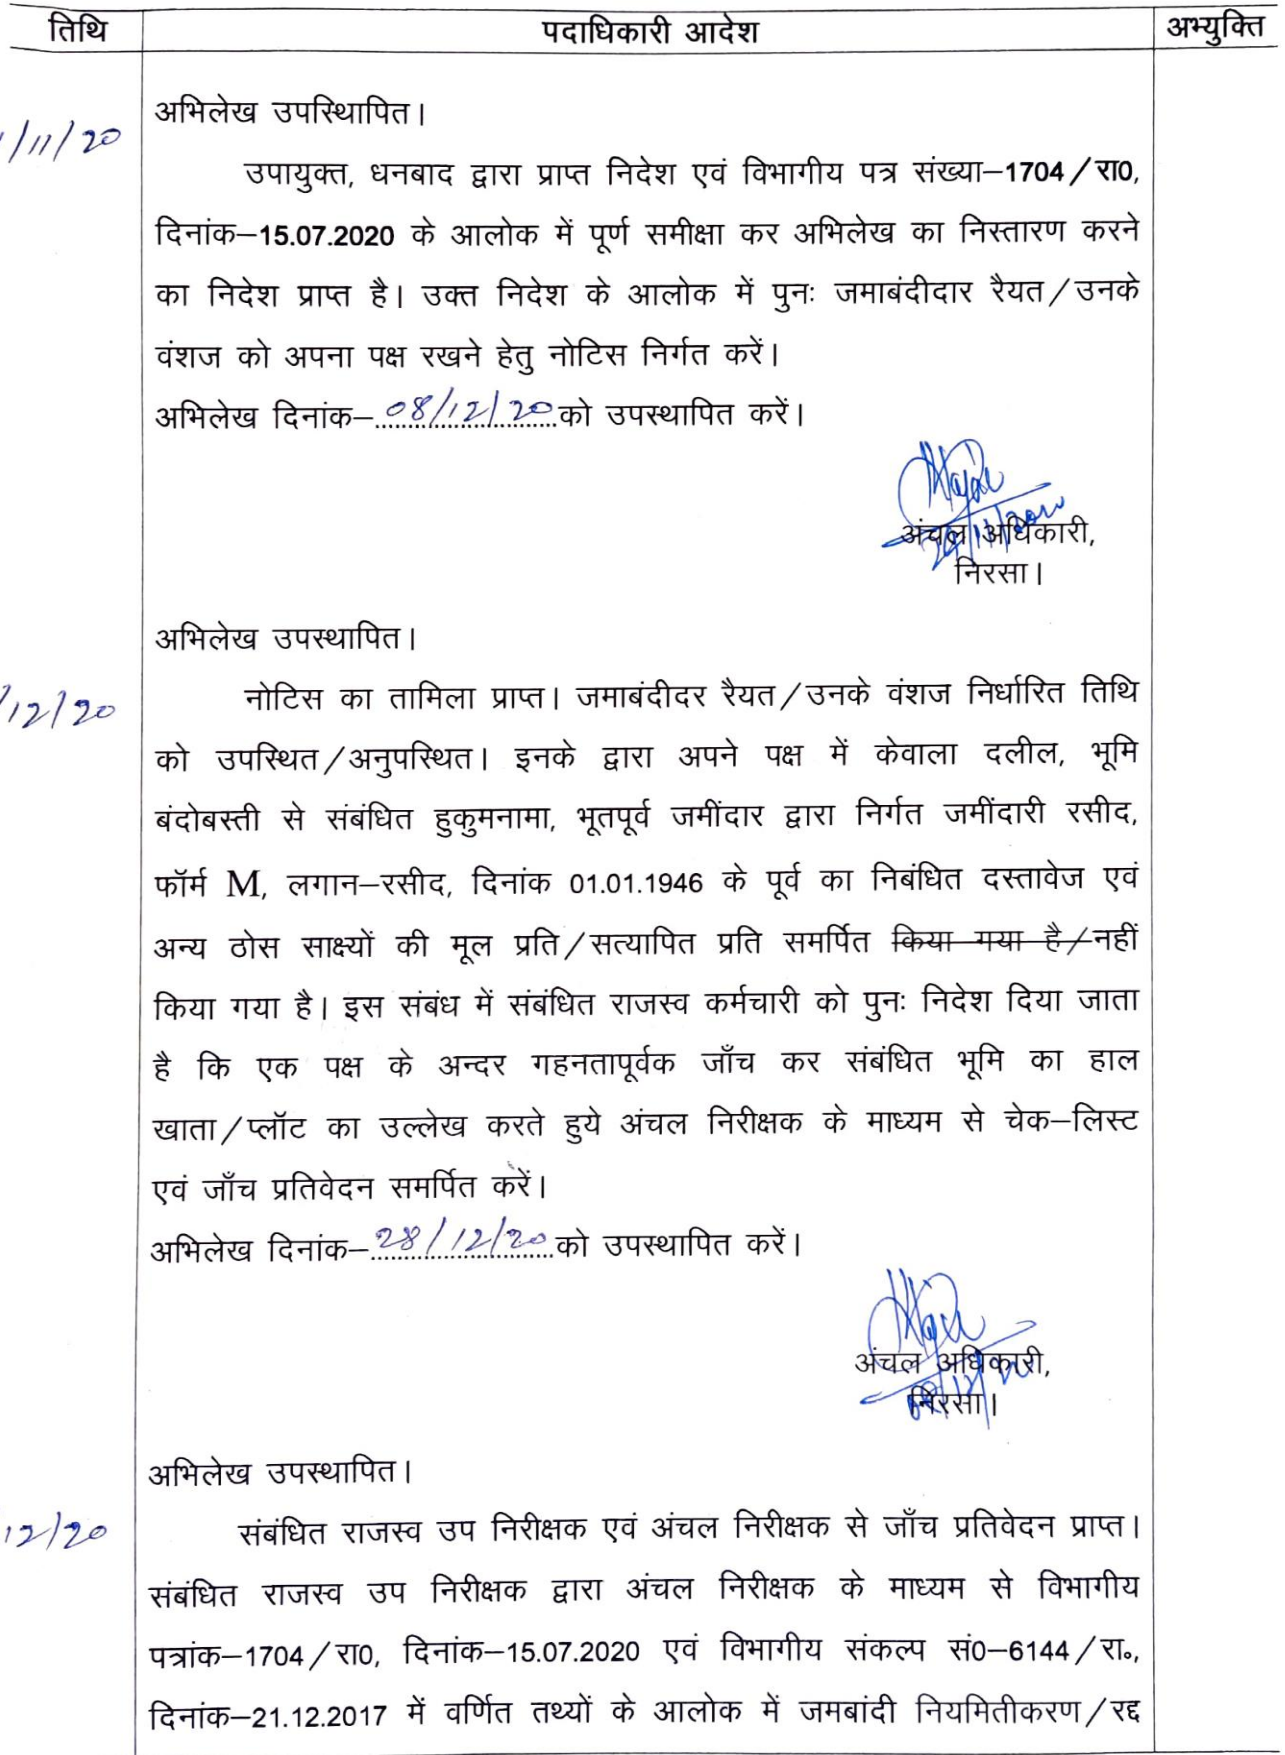 तिथि पदाधिकारी आदेश अभ्युक्ति
अभिलेख उपस्थापित।
/11/20
उपायुक्त, धनबाद द्वारा प्राप्त निदेश एवं विभागीय पत्र संख्या–1704/रा0,
दिनांक–15.07.2020 के आलोक में पूर्ण समीक्षा कर अभिलेख का निस्तारण करने
का निदेश प्राप्त है। उक्त निदेश के आलोक में पुनः जमाबंदीदार रैयत/उनके
वंशज को अपना पक्ष रखने हेतु नोटिस निर्गत करें।
अभिलेख दिनांक–08/12/20 को उपस्थापित करें।
अंचल अधिकारी,
निरसा।
अभिलेख उपस्थापित।
/12/20
नोटिस का तामिला प्राप्त। जमाबंदीदर रैयत/उनके वंशज निर्धारित तिथि
को उपस्थित/अनुपस्थित। इनके द्वारा अपने पक्ष में केवाला दलील, भूमि
बंदोबस्ती से संबंधित हुकुमनामा, भूतपूर्व जमींदार द्वारा निर्गत जमींदारी रसीद,
फॉर्म M, लगान–रसीद, दिनांक 01.01.1946 के पूर्व का निबंधित दस्तावेज एवं
अन्य ठोस साक्ष्यों की मूल प्रति/सत्यापित प्रति समर्पित किया गया है/नहीं
किया गया है। इस संबंध में संबंधित राजस्व कर्मचारी को पुनः निदेश दिया जाता
है कि एक पक्ष के अन्दर गहनतापूर्वक जाँच कर संबंधित भूमि का हाल
खाता/प्लॉट का उल्लेख करते हुये अंचल निरीक्षक के माध्यम से चेक–लिस्ट
एवं जाँच प्रतिवेदन समर्पित करें।
अभिलेख दिनांक–28/12/20 को उपस्थापित करें।
अंचल अधिकारी,
निरसा।
अभिलेख उपस्थापित।
12/20
संबंधित राजस्व उप निरीक्षक एवं अंचल निरीक्षक से जाँच प्रतिवेदन प्राप्त।
संबंधित राजस्व उप निरीक्षक द्वारा अंचल निरीक्षक के माध्यम से विभागीय
पत्रांक–1704/रा0, दिनांक–15.07.2020 एवं विभागीय संकल्प सं0–6144/रा०,
दिनांक–21.12.2017 में वर्णित तथ्यों के आलोक में जमबांदी नियमितीकरण/रद्द